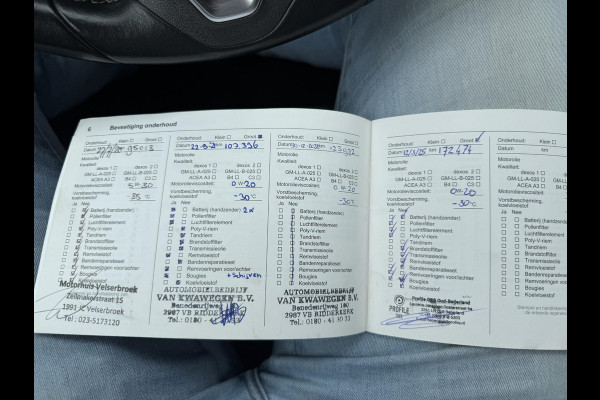 6 Bevestiging onderhoud
Onderhoud: Klein Groot
Datum km 95013
Motorolie
Kwaliteit:
dexos 1 dexos 2
GM-LL-A-025 GM-LL-B-025
ACEA A3 B4 C3
Motorolieviscositeit:
5W-30
Bevriezingsbescherming koelvloeistof
-35 °C
Ja Nee
Batterij (handzender)
Pollenfilter
Luchtfilterelement
Poly-V-riem
Tandriem
Brandstoffilter
Transmissieolie
Remvloeistof
Bandenreparatieset
Remvoeringen voor/achter
Bougies
Koelvloeistof
Motorhuis Velserbroek
Zeilmakerstraat 15
1991 JC Velserbroek
Tel: 023-5173120
Onderhoud: Klein Groot
Datum km 107.336
Motorolie
Kwaliteit:
dexos 1 dexos 2
GM-LL-A-025 GM-LL-B-025
ACEA A3 B4 C3
Motorolieviscositeit:
0W-20
koelvloeistof
-30 °C
Ja Nee
Batterij (handzender) 2x
Pollenfilter
Luchtfilterelement
Poly-V-riem
Tandriem
Brandstoffilter
Transmissieolie
Remvloeistof
Bandenreparatieset
Remvoeringen voor/achter
Bougies + schijven
Koelvloeistof
AUTOMOBIELBEDRIJF
VAN KWAWEGEN B.V.
Benedenrijweg
2987 VB RIDDERKERK
Tel.: 0180 - 41
Onderhoud: Klein Groot
Datum km
Motorolie
Kwaliteit:
dexos 1 dexos 2
GM-LL-A-025 GM-LL-B-025
ACEA A3 B4 C3
Motorolieviscositeit:
0W-20
koelvloeistof
-30 °C
Ja Nee
Batterij (handzender)
Pollenfilter
Luchtfilterelement
Poly-V-riem
Tandriem
Brandstoffilter
Transmissieolie
Remvloeistof
Bandenreparatieset
Remvoeringen voor/achter
Bougies
Koelvloeistof
AUTOMOBIELBEDRIJF
VAN KWAWEGEN B.V.
Benedenrijweg
2987 VB RIDDERKERK
Tel.: 0180 - 41
Onderhoud: Klein Groot
Datum 12/3/25 km 172474
Motorolie
Kwaliteit:
dexos 1 dexos 2
GM-LL-A-025 GM-LL-B-025
ACEA A3 B4 C3
Motorolieviscositeit:
0W-20
koelvloeistof
-30 °C
Ja Nee
Batterij (handzender)
Pollenfilter
Luchtfilterelement
Poly-V-riem
Tandriem
Brandstoffilter
Transmissieolie
Remvloeistof
Bandenreparatieset
Remvoeringen voor/achter
Bougies
Koelvloeistof
PROFILE
Onderhoud: Klein
Datum km
Motorolie
Kwaliteit:
dexos 1
GM-LL-A-025
ACEA A3
Motorolieviscositeit:
koelvloeistof
Ja Nee
Batterij (handzender)
Pollenfilter
Luchtfilterelement
Poly-V-riem
Tandriem
Brandstoffilter
Transmissieolie
Remvloeistof
Bandenreparatieset
Remvoeringen
Bougies
Koelvloeistof